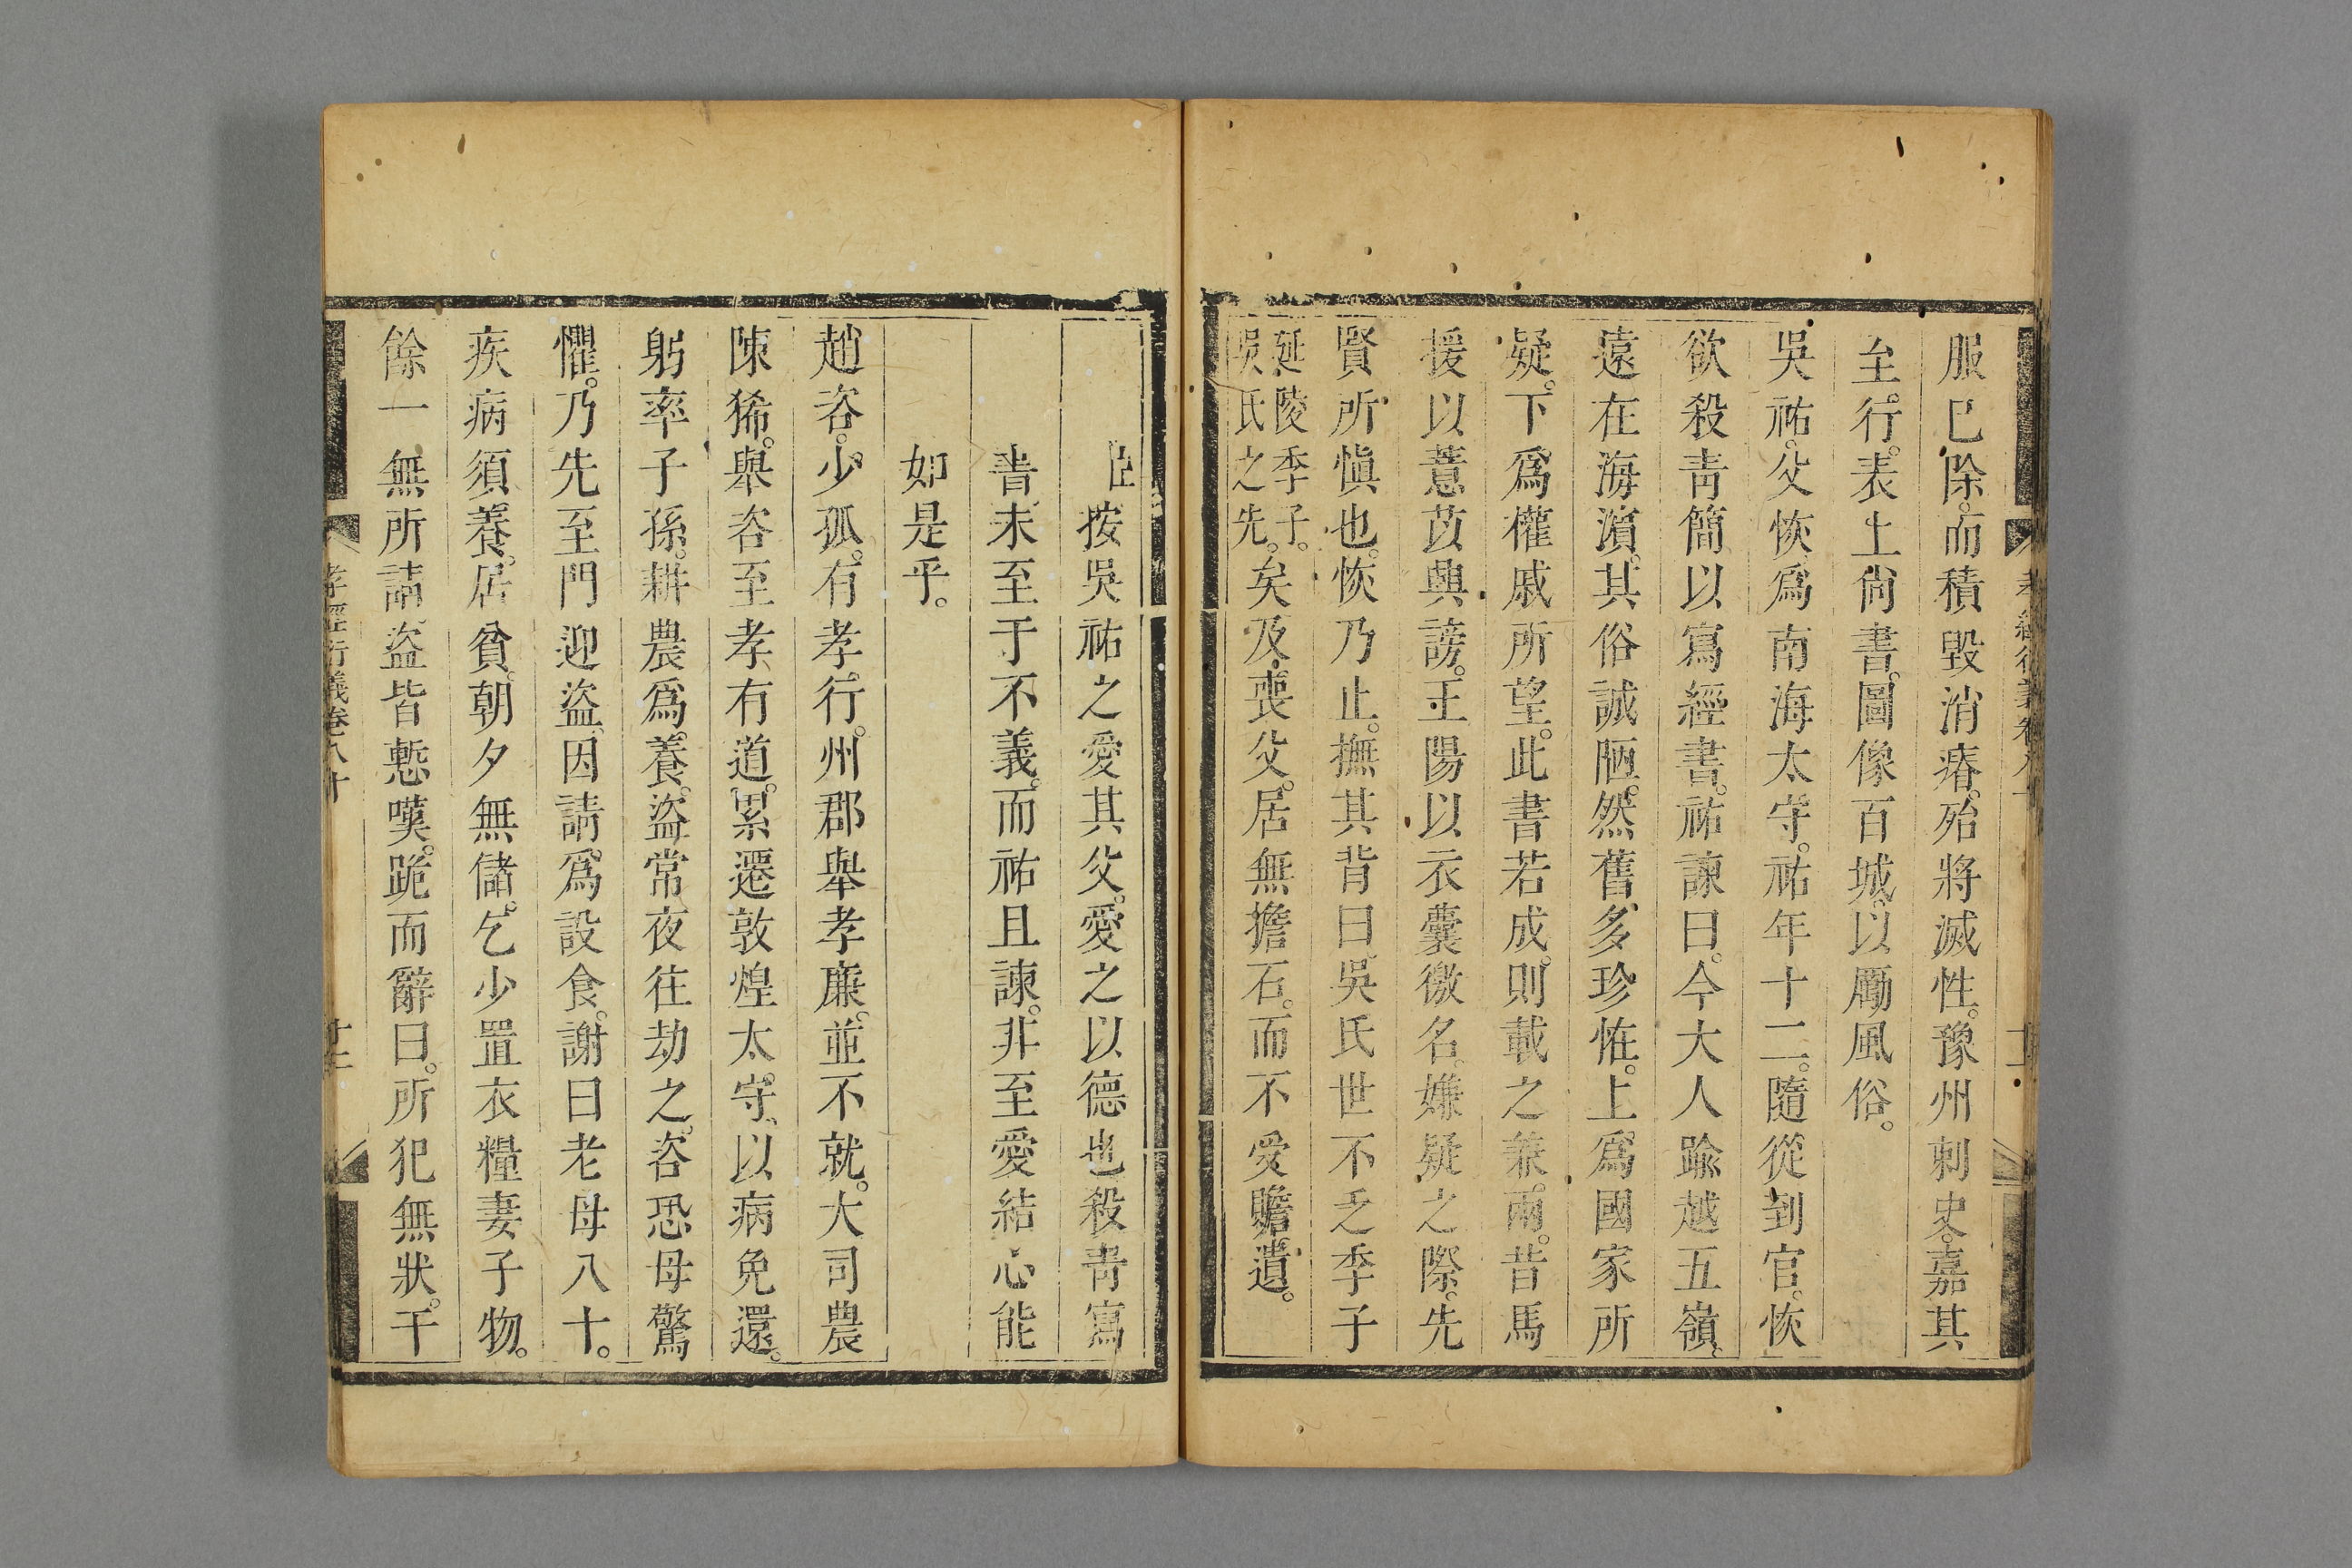 服已除。而積毀消瘠。殆將滅性。豫州刺史。嘉其
至行。表上尙書。圖像百城。以厲風俗。
吳祐。父恢爲南海太守。祐年十二。隨從到官。恢
欲殺靑簡以寫經書。祐諫曰。今大人踰越五嶺。
遠在海濱。其俗誠陋。然舊多珍怪。上爲國家所
疑。下爲權戚所望。此書若成。則載之兼兩。昔馬
援以薏苡興謗。王陽以衣囊徼名。嫌疑之際。先
賢所愼也。恢乃止。撫其背曰。吳氏世不乏季子
延陵季子。吳氏之先。矣。及喪父。居無擔石。而不受贍遺。
臣按吳祐之愛其父。愛之以德也。殺靑寫
書。未至于不義。而祐且諫。非至愛結心。能
如是乎。
趙咨。少孤。有孝行。州郡舉孝廉。並不就。大司農
陳豨。舉咨至孝有道。累遷敦煌太守。以病免還。
躬率子孫。耕農爲養。盜常夜往劫之。咨恐母驚
懼。乃先至門迎盜。因請爲設食。謝曰老母八十。
疾病須養。居貧。朝夕無儲。乞少置衣糧妻子物。
餘一無所請。盜皆慙嘆。跪而辭曰。所犯無狀。干
孝經衍義卷八十